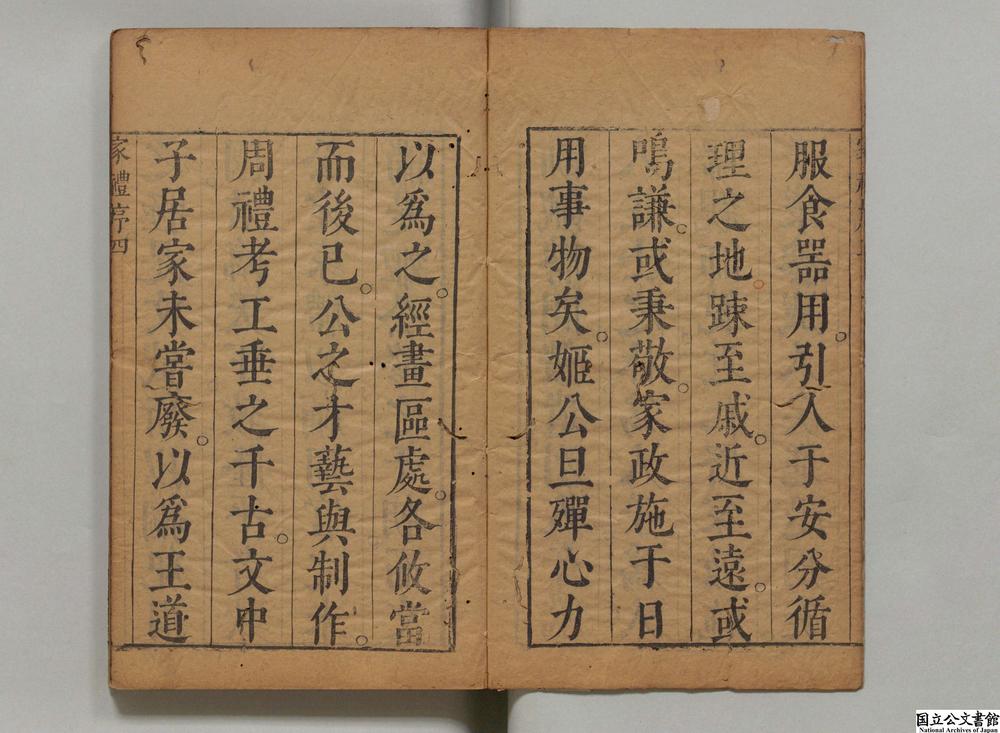 服食器用。引入于安分循
理之地。踈至戚。近至遠。或
鳴謙。或秉敬。家政施于日
用事物矣。姬公旦殫心力
以爲之。經畫區處。各攸當
而後已。公之才藝與制作。
周禮考工垂之千古。文中
子居家未嘗廢。以爲王道
家禮序四
国立公文書館
National Archives of Japan